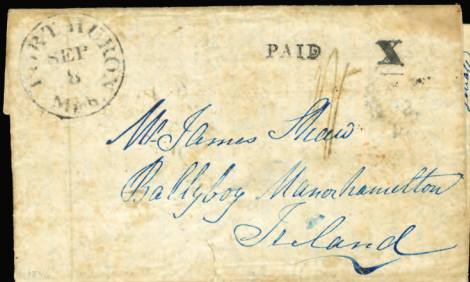 PORT HURON
SEP
8
Mich
PAID X
Mr James Shaw
Ballyboy Manorhamilton
Ireland